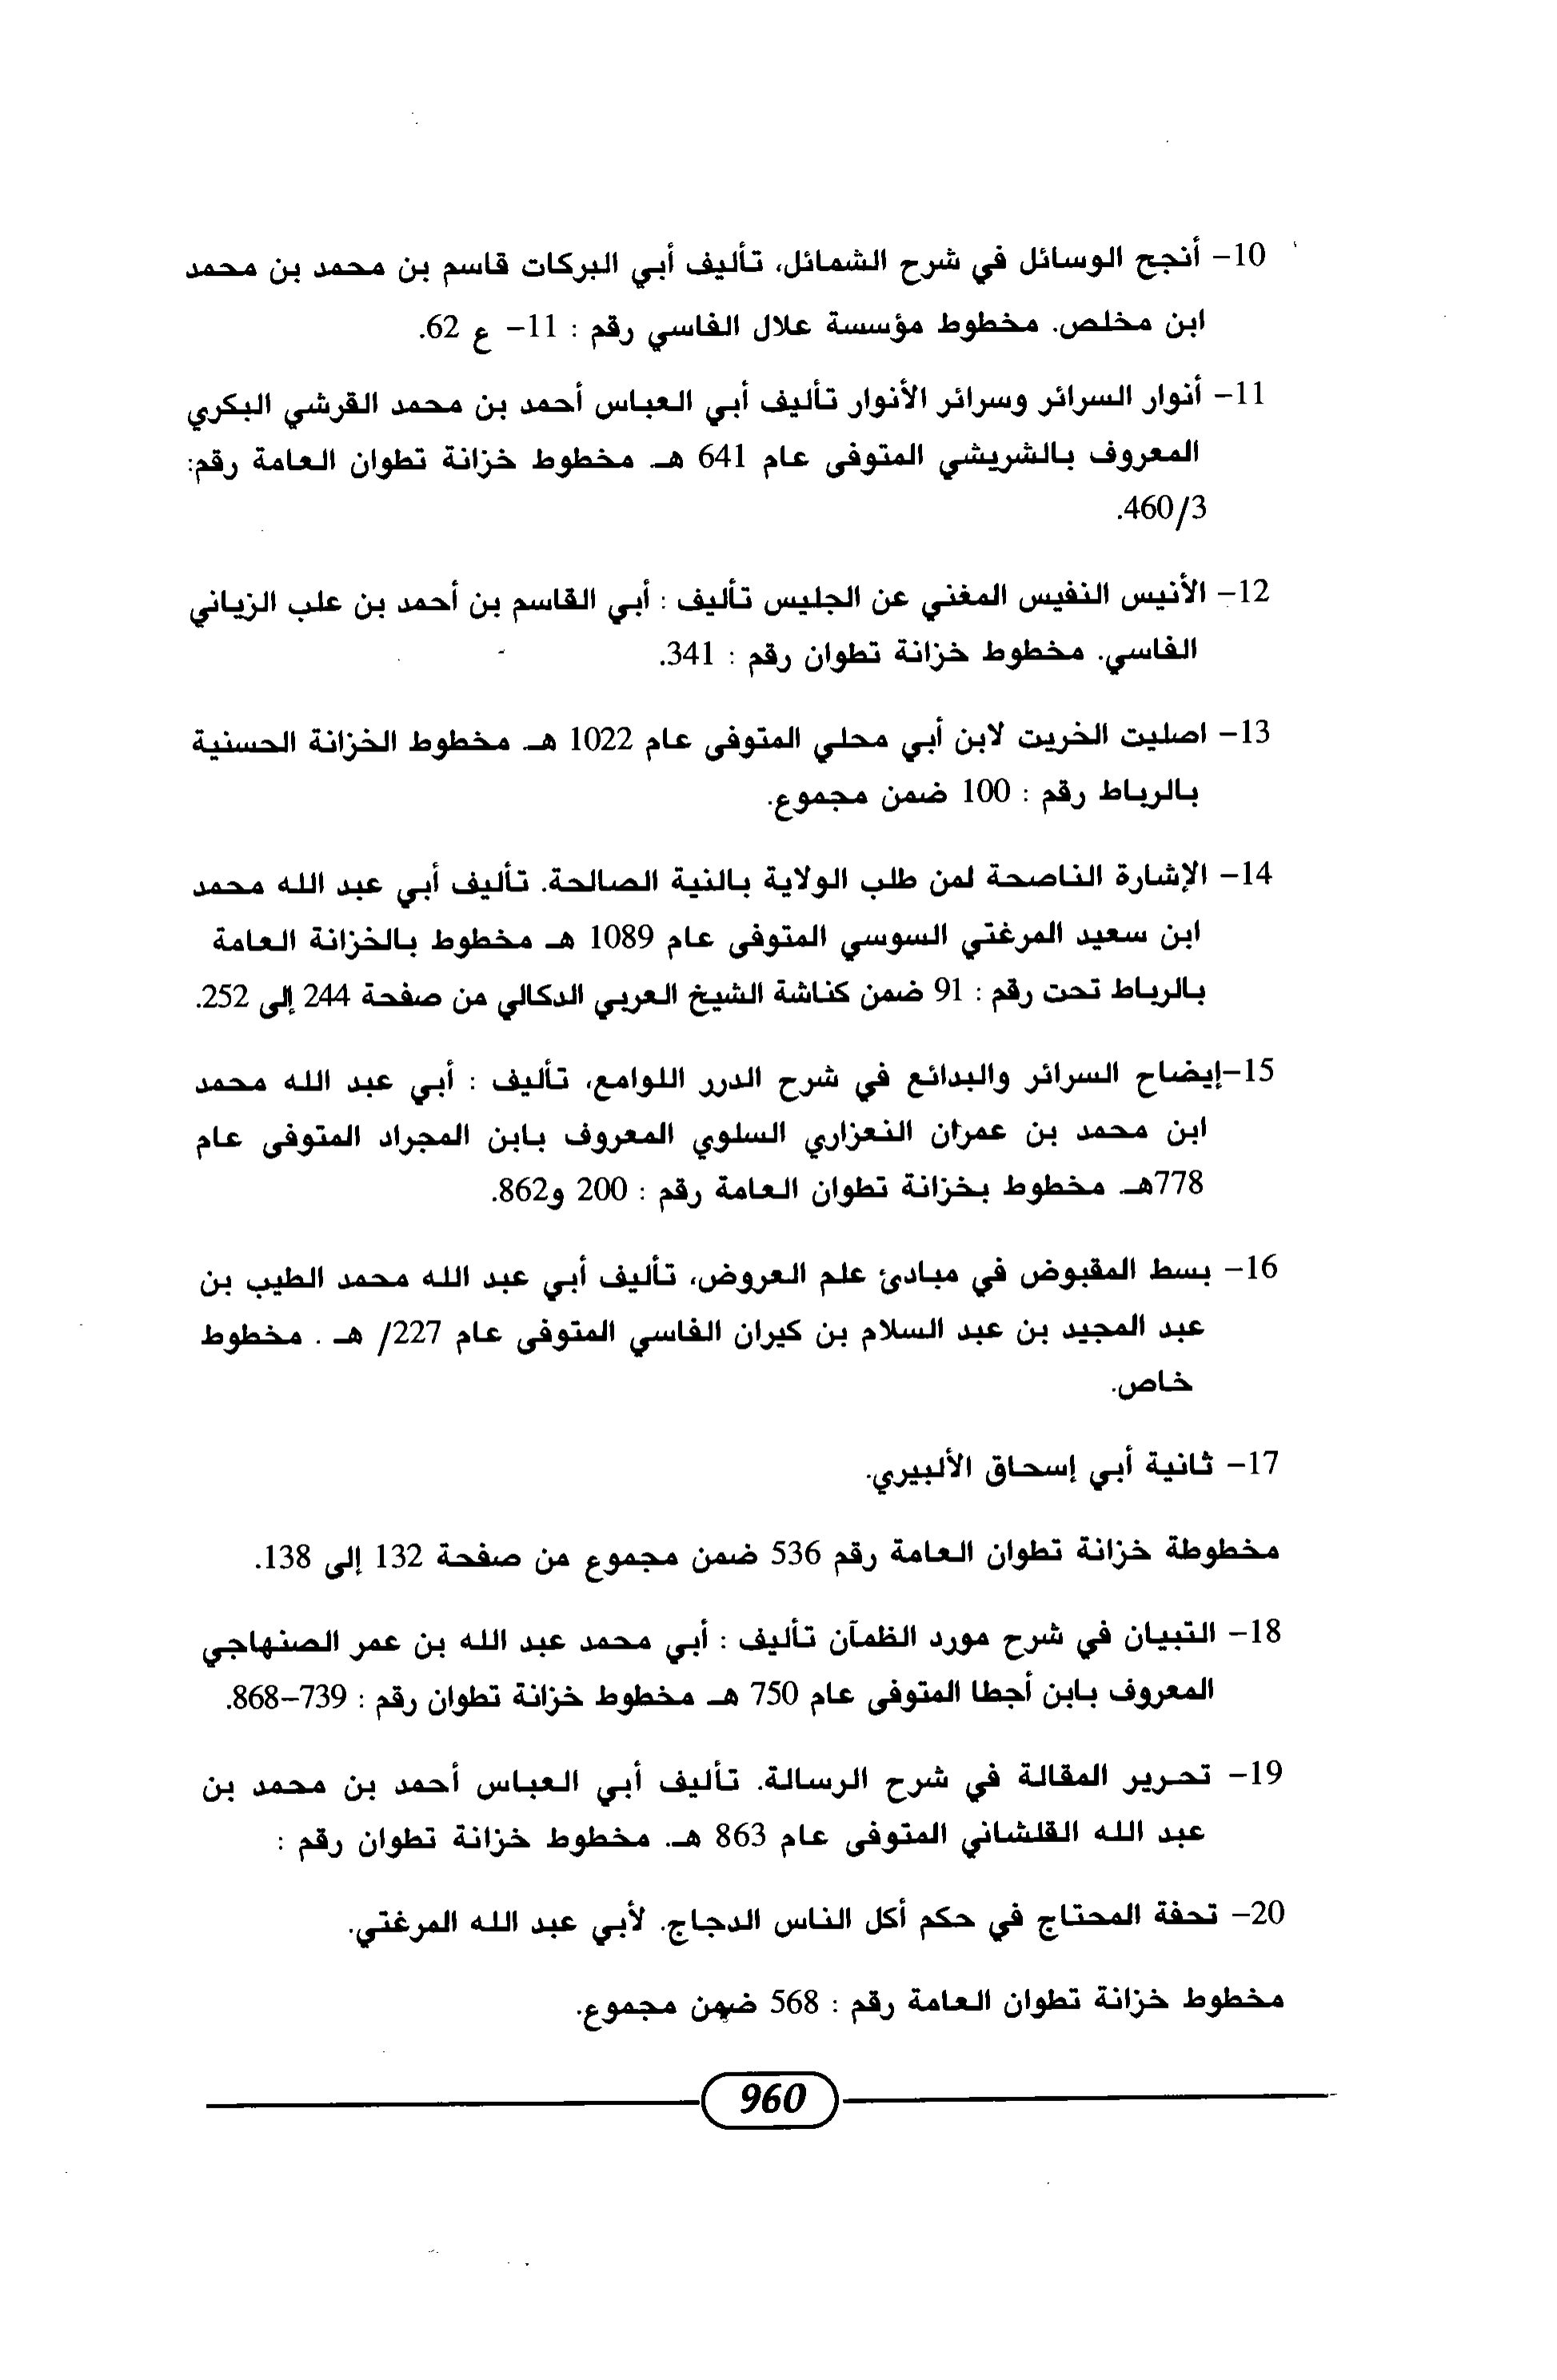 10- أنجح الوسائل في شرح الشمائل، تأليف أبي البركات قاسم بن محمد بن محمد
ابن مخلص. مخطوط مؤسسة علال الفاسي رقم : 11- ع 62.
11- أنوار السرائر وسرائر الأنوار تأليف أبي العباس أحمد بن محمد القرشي البكري
المعروف بالشريشي المتوفى عام 641 هـ. مخطوط خزانة تطوان العامة رقم:
460/3.
12- الأنيس النفيس المغني عن الجليس تأليف : أبي القاسم بن أحمد بن علب الزياني
الفاسي. مخطوط خزانة تطوان رقم : 341.
13- اصليت الخريت لابن أبي محلي المتوفى عام 1022 هـ. مخطوط الخزانة الحسنية
بالرباط رقم : 100 ضمن مجموع.
14- الإشارة الناصحة لمن طلب الولاية بالنية الصالحة. تأليف أبي عبد الله محمد
ابن سعيد المرغتي السوسي المتوفى عام 1089 هـ مخطوط بالخزانة العامة
بالرباط تحت رقم : 91 ضمن كناشة الشيخ العربي الدكالي من صفحة 244 إلى 252.
15-إيضاح السرائر والبدائع في شرح الدرر اللوامع، تأليف : أبي عبد الله محمد
ابن محمد بن عمران النعزاري السلوي المعروف بابن المجراد المتوفى عام
778هـ. مخطوط بخزانة تطوان العامة رقم : 200 و862.
16- بسط المقبوض في مبادئ علم العروض، تأليف أبي عبد الله محمد الطيب بن
عبد المجيد بن عبد السلام بن كيران الفاسي المتوفى عام 227/ هـ . مخطوط
خاص.
17- ثانية أبي إسحاق الألبيري.
مخطوطة خزانة تطوان العامة رقم 536 ضمن مجموع من صفحة 132 إلى 138.
18- التبيان في شرح مورد الظمآن تأليف : أبي محمد عبد الله بن عمر الصنهاجي
المعروف بابن أجطا المتوفى عام 750 هـ مخطوط خزانة تطوان رقم : 739-868.
19- تحرير المقالة في شرح الرسالة. تأليف أبي العباس أحمد بن محمد بن
عبد الله القلشاني المتوفى عام 863 هـ. مخطوط خزانة تطوان رقم :
20- تحفة المحتاج في حكم أكل الناس الدجاج. لأبي عبد الله المرغتي.
مخطوط خزانة تطوان العامة رقم : 568 ضمن مجموع.
960